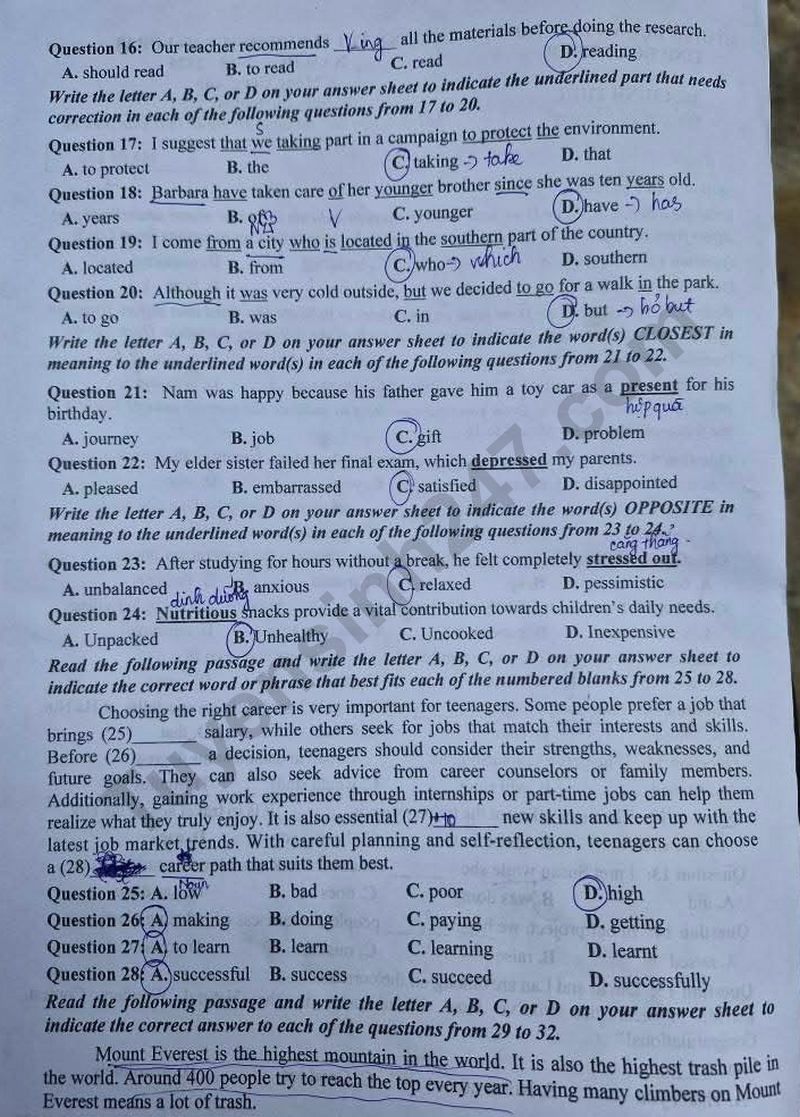 Question 16: Our teacher recommends Ving all the materials before doing the research.
A. should read B. to read C. read D. reading
Write the letter A, B, C, or D on your answer sheet to indicate the underlined part that needs
correction in each of the following questions from 17 to 20.
S
Question 17: I suggest that we taking part in a campaign to protect the environment.
A. to protect B. the C. taking → take D. that
Question 18: Barbara have taken care of her younger brother since she was ten years old.
A. years B. of V C. younger D. have → has
Question 19: I come from a city who is located in the southern part of the country.
A. located B. from C. who → which D. southern
Question 20: Although it was very cold outside, but we decided to go for a walk in the park.
A. to go B. was C. in D. but → bỏ but
Write the letter A, B, C, or D on your answer sheet to indicate the word(s) CLOSEST in
meaning to the underlined word(s) in each of the following questions from 21 to 22.
Question 21: Nam was happy because his father gave him a toy car as a present for his
birthday. hộp quà
A. journey B. job C. gift D. problem
Question 22: My elder sister failed her final exam, which depressed my parents.
A. pleased B. embarrassed C. satisfied D. disappointed
Write the letter A, B, C, or D on your answer sheet to indicate the word(s) OPPOSITE in
meaning to the underlined word(s) in each of the following questions from 23 to 24.
căng thẳng
Question 23: After studying for hours without a break, he felt completely stressed out.
A. unbalanced B. anxious C. relaxed D. pessimistic
dinh dưỡng
Question 24: Nutritious snacks provide a vital contribution towards children's daily needs.
A. Unpacked B. Unhealthy C. Uncooked D. Inexpensive
Read the following passage and write the letter A, B, C, or D on your answer sheet to
indicate the correct word or phrase that best fits each of the numbered blanks from 25 to 28.
Choosing the right career is very important for teenagers. Some people prefer a job that
brings (25)________ salary, while others seek for jobs that match their interests and skills.
Before (26)________ a decision, teenagers should consider their strengths, weaknesses, and
future goals. They can also seek advice from career counselors or family members.
Additionally, gaining work experience through internships or part-time jobs can help them
realize what they truly enjoy. It is also essential (27)________ new skills and keep up with the
latest job market trends. With careful planning and self-reflection, teenagers can choose
a (28)________ career path that suits them best.
Noun
Question 25: A. low B. bad C. poor D. high
Question 26: A. making B. doing C. paying D. getting
Question 27: A. to learn B. learn C. learning D. learnt
Question 28: A. successful B. success C. succeed D. successfully
Read the following passage and write the letter A, B, C, or D on your answer sheet to
indicate the correct answer to each of the questions from 29 to 32.
Mount Everest is the highest mountain in the world. It is also the highest trash pile in
the world. Around 400 people try to reach the top every year. Having many climbers on Mount
Everest means a lot of trash.